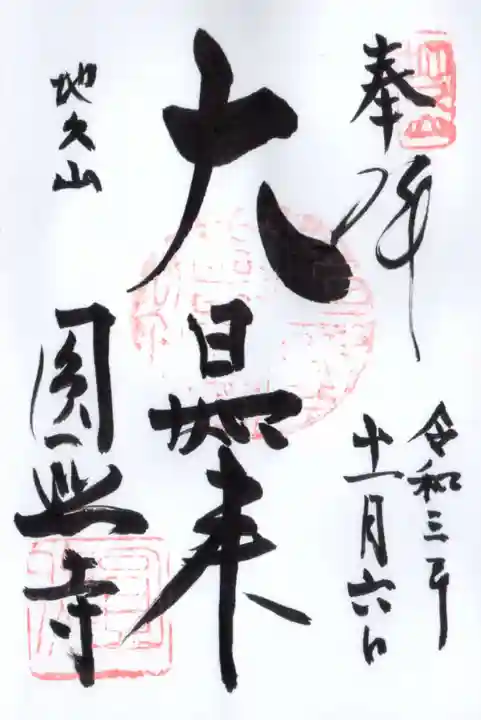 奉拝
令和三年
十一月六日
大日如来
地久山